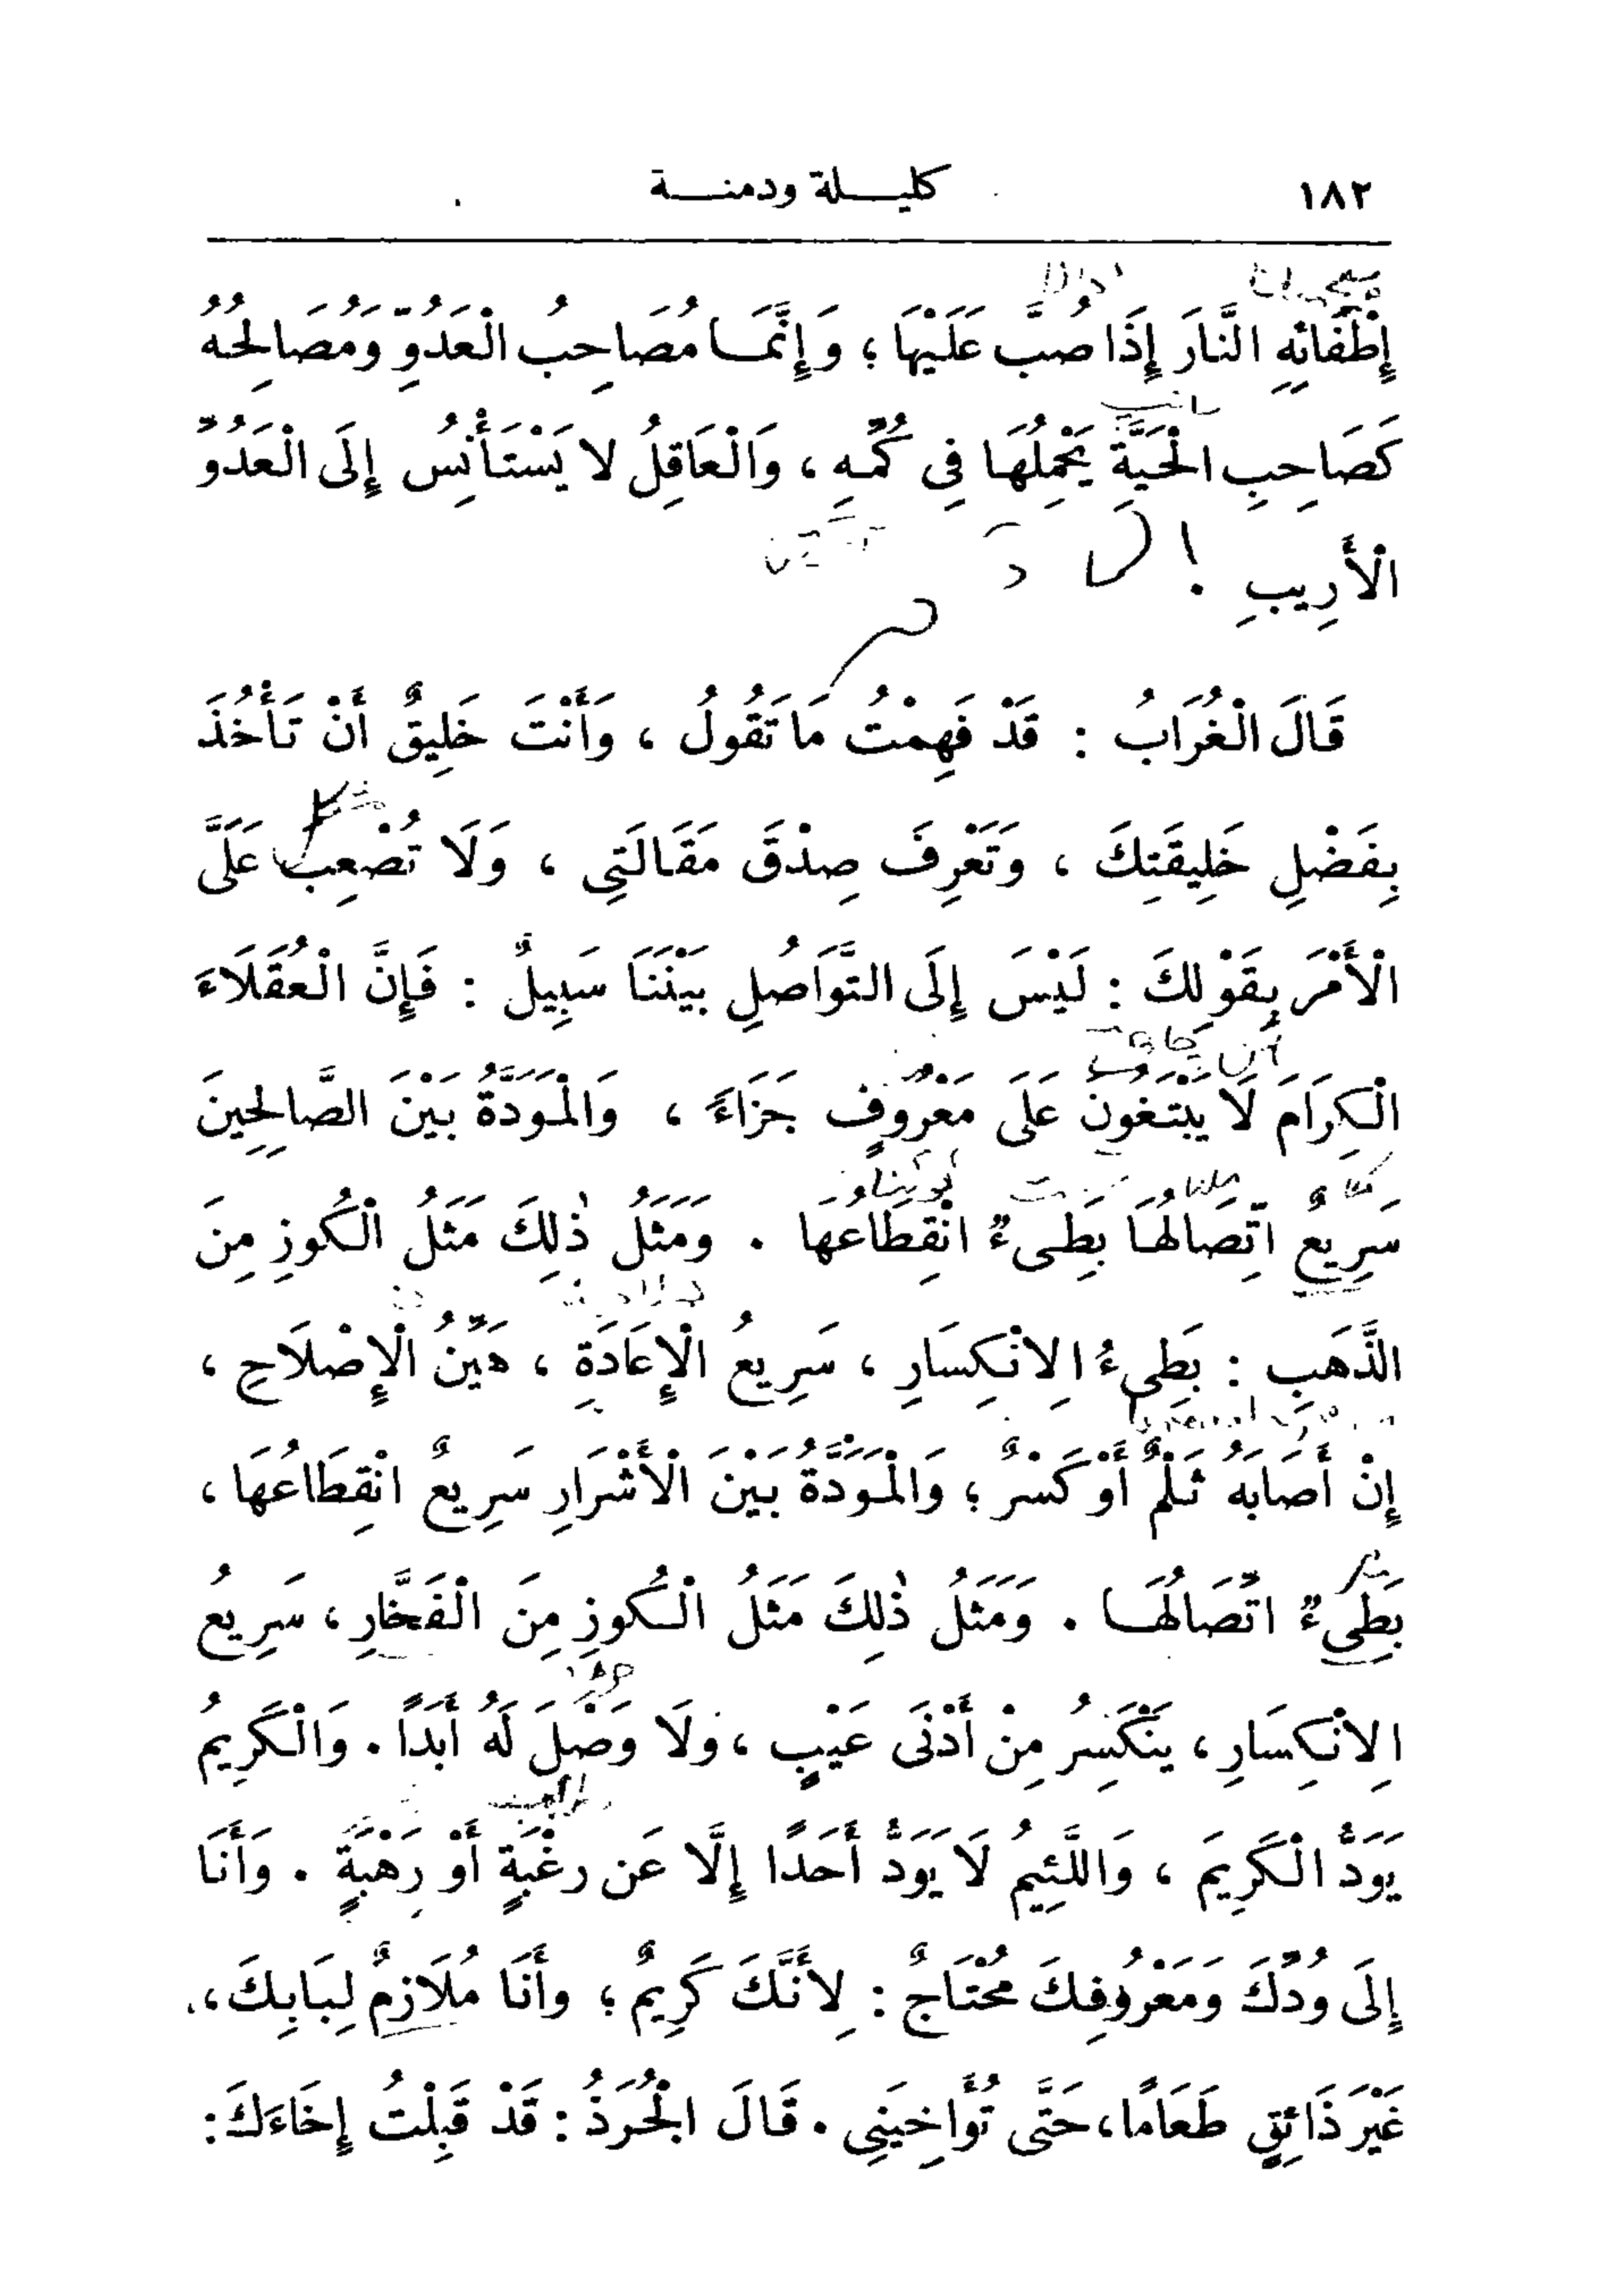 ١٨٢
كليلة ودمنة
إِطْفَائِهِ النَّارَ إِذَا صُبَّ عَلَيْهَا ؛ وَإِنَّمَا مُصَاحِبُ الْعَدُوِّ وَمُصَالِحُهُ
كَصَاحِبِ الْحَيَّةِ يَحْمِلُهَا فِي كُمِّهِ ، وَالْعَاقِلُ لا يَسْتَأْنِسُ إِلَى الْعَدُوِّ
الْأَرِيبِ !
قَالَ الْغُرَابُ : قَدْ فَهِمْتُ مَا تَقُولُ ، وَأَنْتَ خَلِيقٌ أَنْ تَأْخُذَ
بِفَضْلِ خَلِيقَتِكَ ، وَتَعْرِفَ صِدْقَ مَقَالَتِي ، وَلَا تُصْعِبْ عَلَىَّ
الْأَمْرَ بِقَوْلِكَ : لَيْسَ إِلَى التَّوَاصُلِ بَيْنَنَا سَبِيلٌ : فَإِنَّ الْعُقَلَاءَ
الْكِرَامَ لَا يَبْتَغُونَ عَلَى مَعْرُوفٍ جَزَاءً ، وَالْمَوَدَّةُ بَيْنَ الصَّالِحِينَ
سَرِيعٌ اتِّصَالُهَا بَطِىءٌ انْقِطَاعُهَا . وَمَثَلُ ذٰلِكَ مَثَلُ الْكُوزِ مِنَ
الذَّهَبِ : بَطِىءُ الِانْكِسَارِ ، سَرِيعُ الْإِعَادَةِ ، هَيِّنُ الْإِصْلَاحِ ،
إِنْ أَصَابَهُ ثَلْمٌ أَوْ كَسْرٌ ؛ وَالْمَوَدَّةُ بَيْنَ الْأَشْرَارِ سَرِيعٌ انْقِطَاعُهَا ،
بَطِىءٌ اتِّصَالُهَا . وَمَثَلُ ذٰلِكَ مَثَلُ الْكُوزِ مِنَ الْفَخَّارِ ، سَرِيعُ
الِانْكِسَارِ ، يَنْكَسِرُ مِنْ أَدْنَى عَيْبٍ ، وَلَا وَصْلَ لَهُ أَبَدًا . وَالْكَرِيمُ
يَوَدُّ الْكَرِيمَ ، وَاللَّئِيمُ لَا يَوَدُّ أَحَدًا إِلَّا عَن رَغْبَةٍ أَوْ رَهْبَةٍ . وَأَنَا
إِلَى وُدِّكَ وَمَعْرُوفِكَ مُحْتَاجٌ : لِأَنَّكَ كَرِيمٌ ؛ وَأَنَا مُلَازِمٌ لِبَابِكَ ،
غَيْرَ ذَائِقٍ طَعَامًا ، حَتَّى تُؤَاخِيَنِي . قَالَ الْجُرَذُ : قَدْ قَبِلْتُ إِخَاءَكَ :